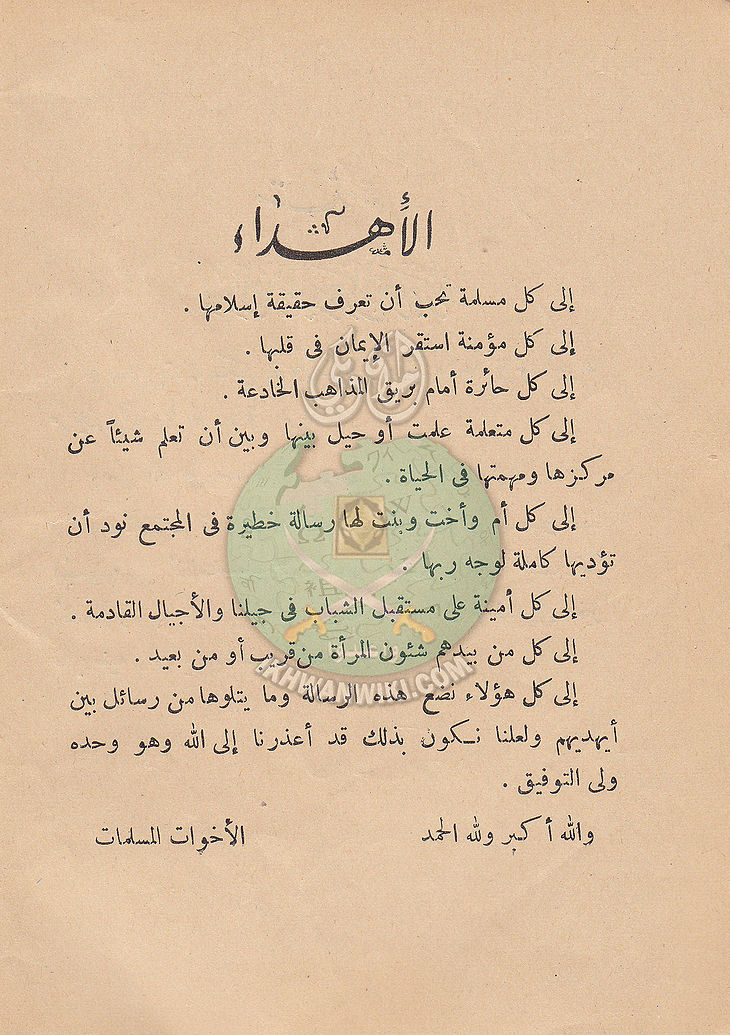 الأهداء
إلى كل مسلمة تحب أن تعرف حقيقة إسلامها .
إلى كل مؤمنة استقر الإيمان فى قلبها .
إلى كل حائرة أمام بريق المذاهب الخادعة .
إلى كل متعلمة علمت أو حيل بينها وبين أن تعلم شيئاً عن
مركزها ومهمتها فى الحياة .
إلى كل أم وأخت وبنت لها رسالة خطيرة فى المجتمع نود أن
تؤديها كاملة لوجه ربها .
إلى كل أمينة على مستقبل الشباب فى جيلنا والأجيال القادمة .
إلى كل من بيدهم شئون المرأة من قريب أو من بعيد .
إلى كل هؤلاء نضع هذه الرسالة وما يتلوها من رسائل بين
أيهديهم ولعلنا نكون بذلك قد أعذرنا إلى الله وهو وحده
ولى التوفيق .
والله أكبر ولله الحمد الأخوات المسلمات
.KHWANWIKI.COM